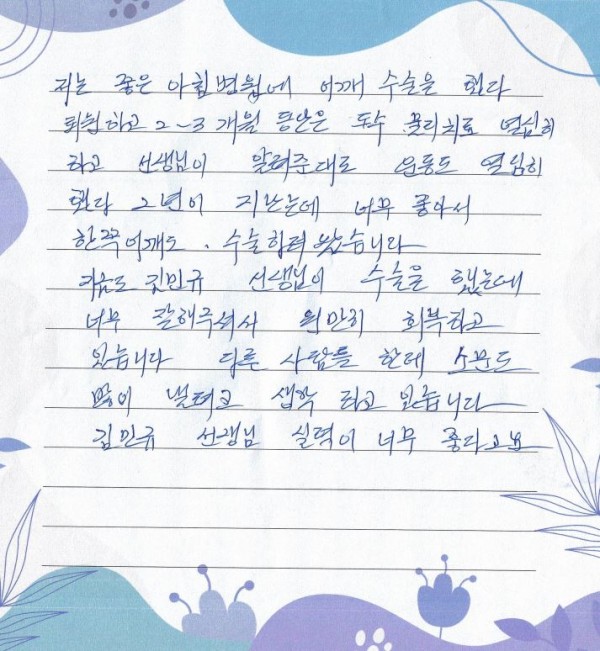 저는 좋은 아침병원에 어깨 수술을 했다
퇴원하고 2~3 개월 동안은 도수 물리치료 열심히
하고 선생님이 알려준대로 운동도 열심히
했다 2년이 지난는데 너무 좋아서
한쪽어깨도. 수술하려 왔습니다
처음도 김민규 선생님이 수술을 했는데
너무 잘해주셔서 원만히 회복하고
있습니다 다른 사람들 한데 소문도
많이 낼려고 생각 하고 있습니다
김민규 선생님 실력이 너무 좋다고요